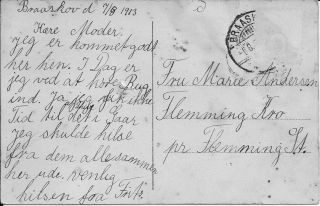 Braaskov d 7/8 1913
Kære Moder.
jeg er kommet godt
her hen. I Dag er
jeg ved at høste Rug
ind. Ja jeg fik ikke
Tid til det i Gaar
jeg skulde hilse
fra dem allesammen
her ude. Venlig
hilsen fra Frits
BRAASK
Fru Marie Andersen
Flemming Kro
pr Flemming St.